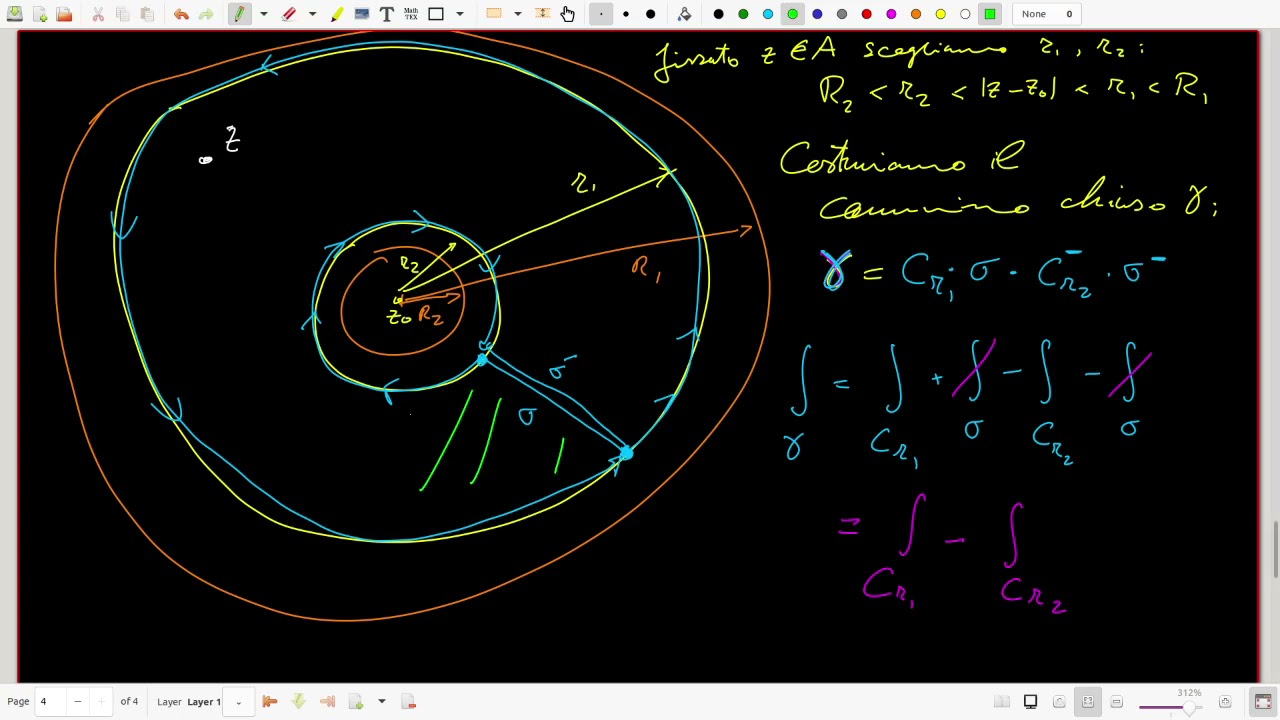 Math
TEX
None 0
fissato z ∈ A scegliamo r₁, r₂ :
R₂ < r₂ < |z - z₀| < r₁ < R₁
Costruiamo il
cammino chiuso γ:
γ = C_r₁ · σ · C_r₂⁻ · σ⁻
∫_γ = ∫_C_r₁ + ∫_σ - ∫_C_r₂ - ∫_σ
= ∫_C_r₁ - ∫_C_r₂
z
r₁
R₁
r₂
z₀
R₂
σ⁻
σ
Page 4 of 4 Layer Layer 1
312%